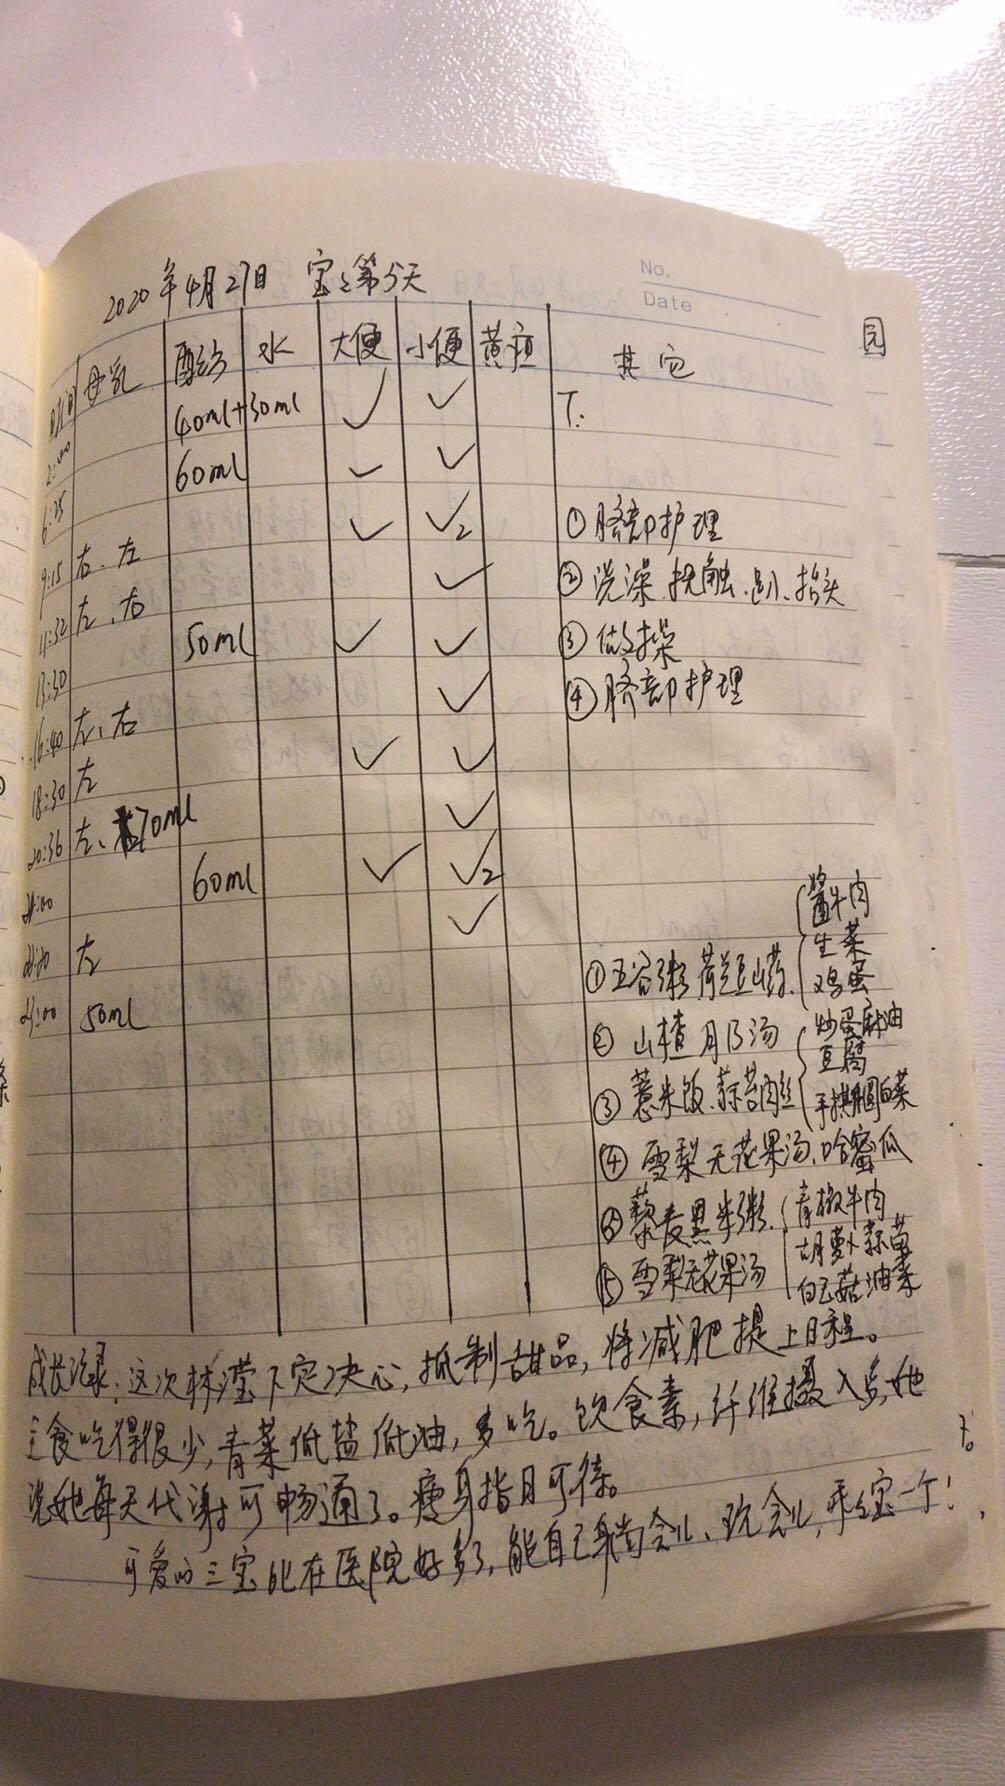 No.
Date
2020年4月27日 宝宝第5天
时间 母乳 配奶 水 大便 小便 黄疸 其它
2:00 40ml+30ml ✓ ✓ T:
6:25 60ml ✓ ✓
9:15 右、左 ✓ ✓2 ①脐部护理
11:32 左、右 ✓ ②洗澡.抚触.趴、抬头
13:30 50ml ✓ ✓ ③做操
16:40 左、右 ✓ ④脐部护理
18:30 左 ✓ ✓
20:36 左、70ml ✓
21:00 60ml ✓ ✓2
左 ✓
50ml
①五谷粥 荷兰豆山药. 酱牛肉
生菜
鸡蛋
②山楂 汤 炒蛋麻油
豆腐
③薏米饭.蒜苔肉丝 手撕圆白菜
④雪梨无花果汤.哈蜜瓜
⑤藜麦黑米粥. 青椒牛肉
胡萝卜蒜苗
雪梨无花果汤 白玉菇油菜
成长记录:这次林滢下定决心,抵制甜品,将减肥提上日程。
主食吃得很少,青菜低盐低油,多吃。饮食素,纤维摄入多,她
说她每天代谢可畅通了。瘦身指日可待。
可爱的三宝比在医院好多了,能自己躺会儿、玩会儿,乖宝宝一个!